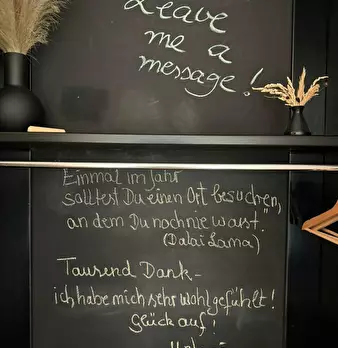 Leave
me a
message!
Einmal im Jahr
solltest Du einen Ort besuchen,
an dem Du noch nie warst."
(Dalai Lama)
Tausend Dank -
ich habe mich sehr wohl gefühlt!
Glück auf!